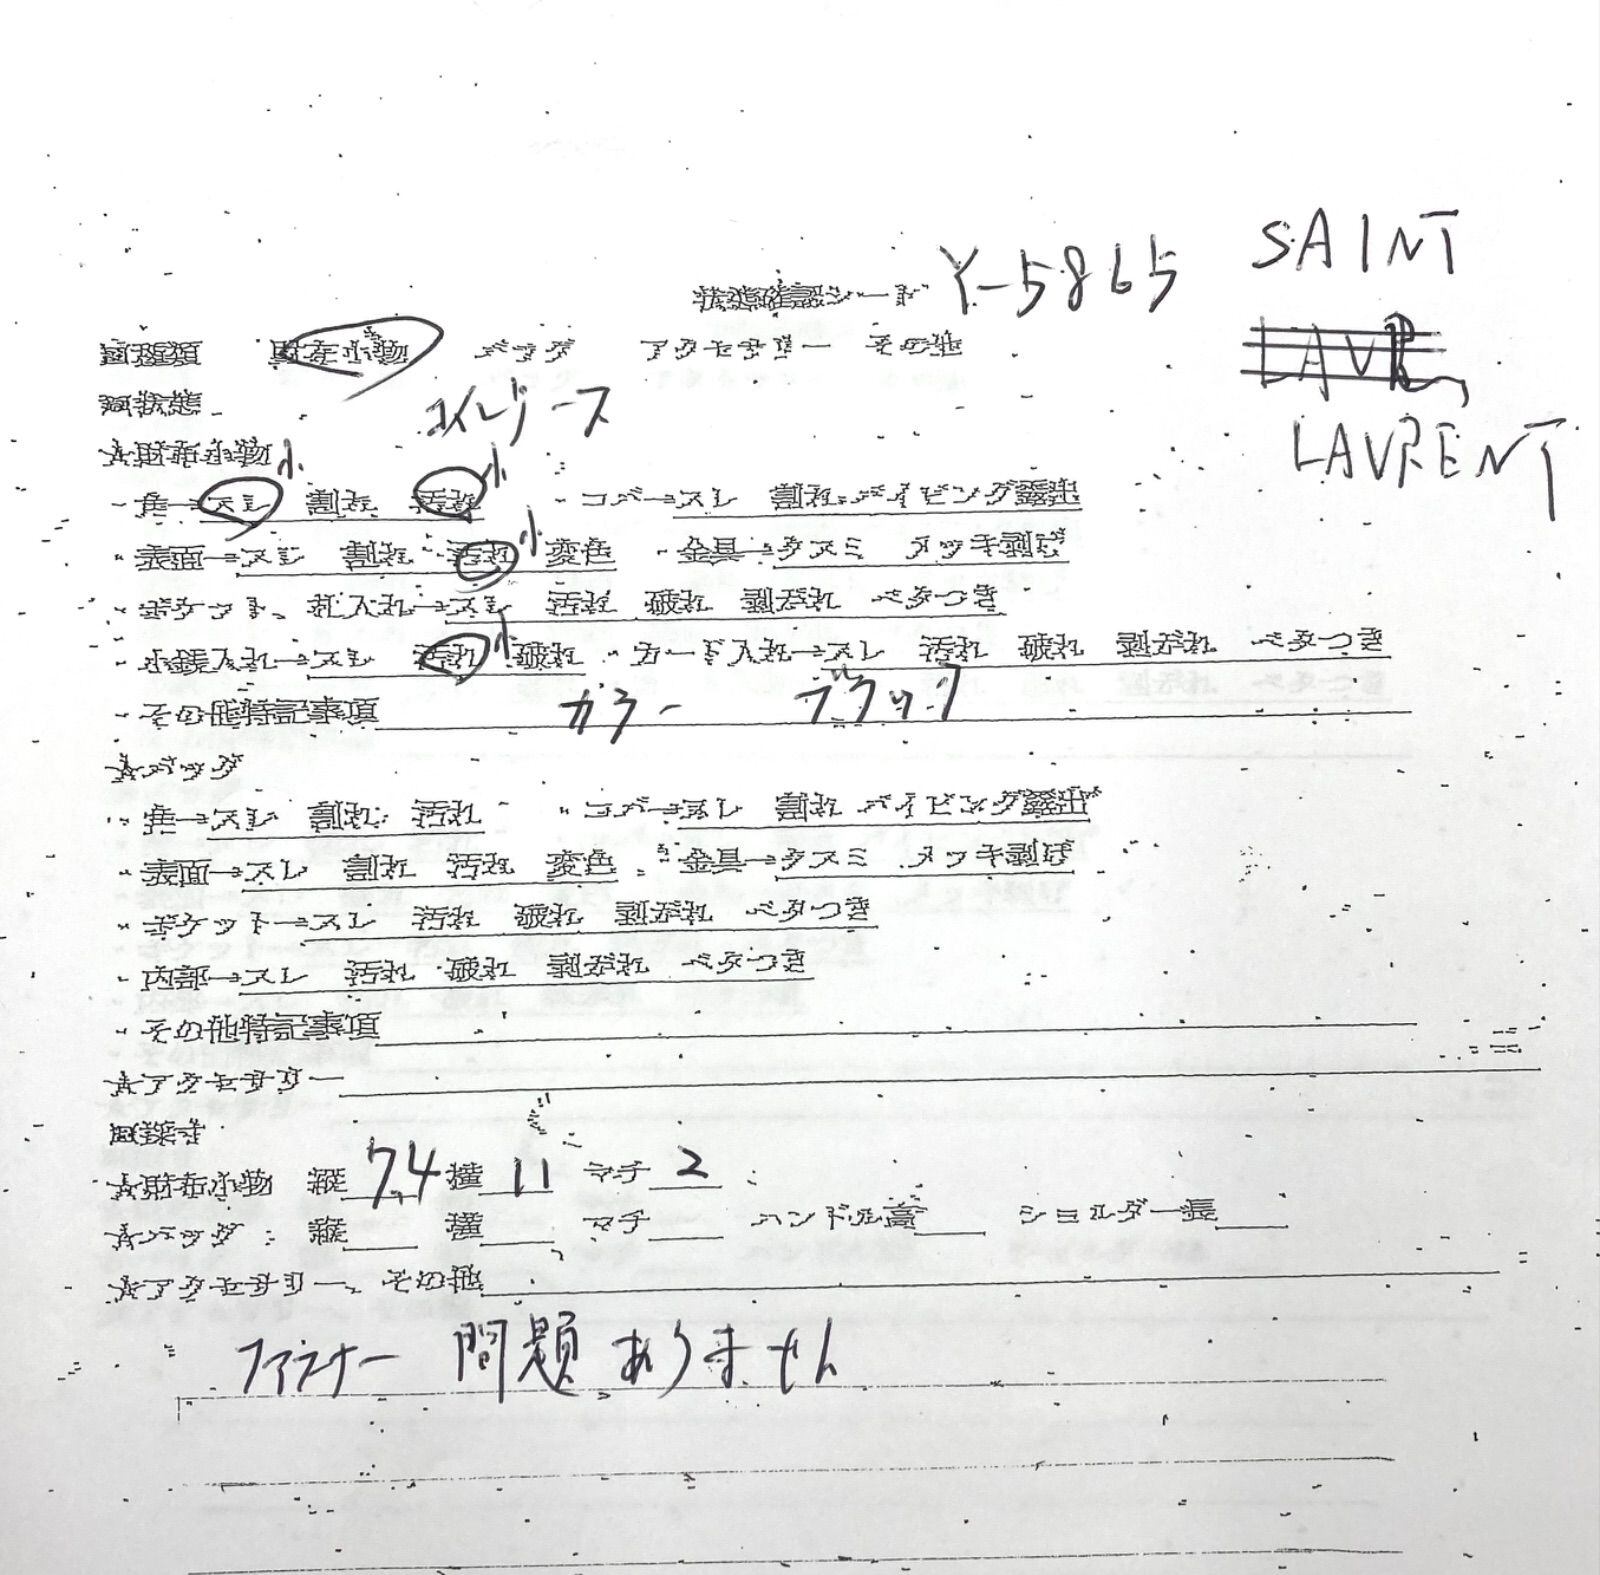 Y-5865 SAINT
状態確認シート
LAVR
LAVRENT
■種類 財布小物 バッグ アクセサリー その他
■状態
コインケース
★財布小物
・角→スレ 小 割れ 汚れ 小 ・コバ→スレ 割れ パイピング露出
・表面→スレ 割れ 汚れ 小 変色 ・金具→クスミ メッキ剥げ
・ポケット、札入れ→スレ 汚れ 破れ 剥がれ ベタつき
・小銭入れ→スレ 汚れ 小 破れ ・カード入れ→スレ 汚れ 破れ 剥がれ ベタつき
・その他特記事項 カラー ブラック
★バッグ
・角→スレ 割れ 汚れ ・コバ→スレ 割れ パイピング露出
・表面→スレ 割れ 汚れ 変色 ・金具→クスミ メッキ剥げ
・ポケット→スレ 汚れ 破れ 剥がれ ベタつき
・内部→スレ 汚れ 破れ 剥がれ ベタつき
・その他特記事項
★アクセサリー
■採寸
★財布小物 縦 7.4 横 11 マチ 2
★バッグ 縦 横 マチ ハンドル高 ショルダー長
★アクセサリー、その他
ファスナー 問題ありません